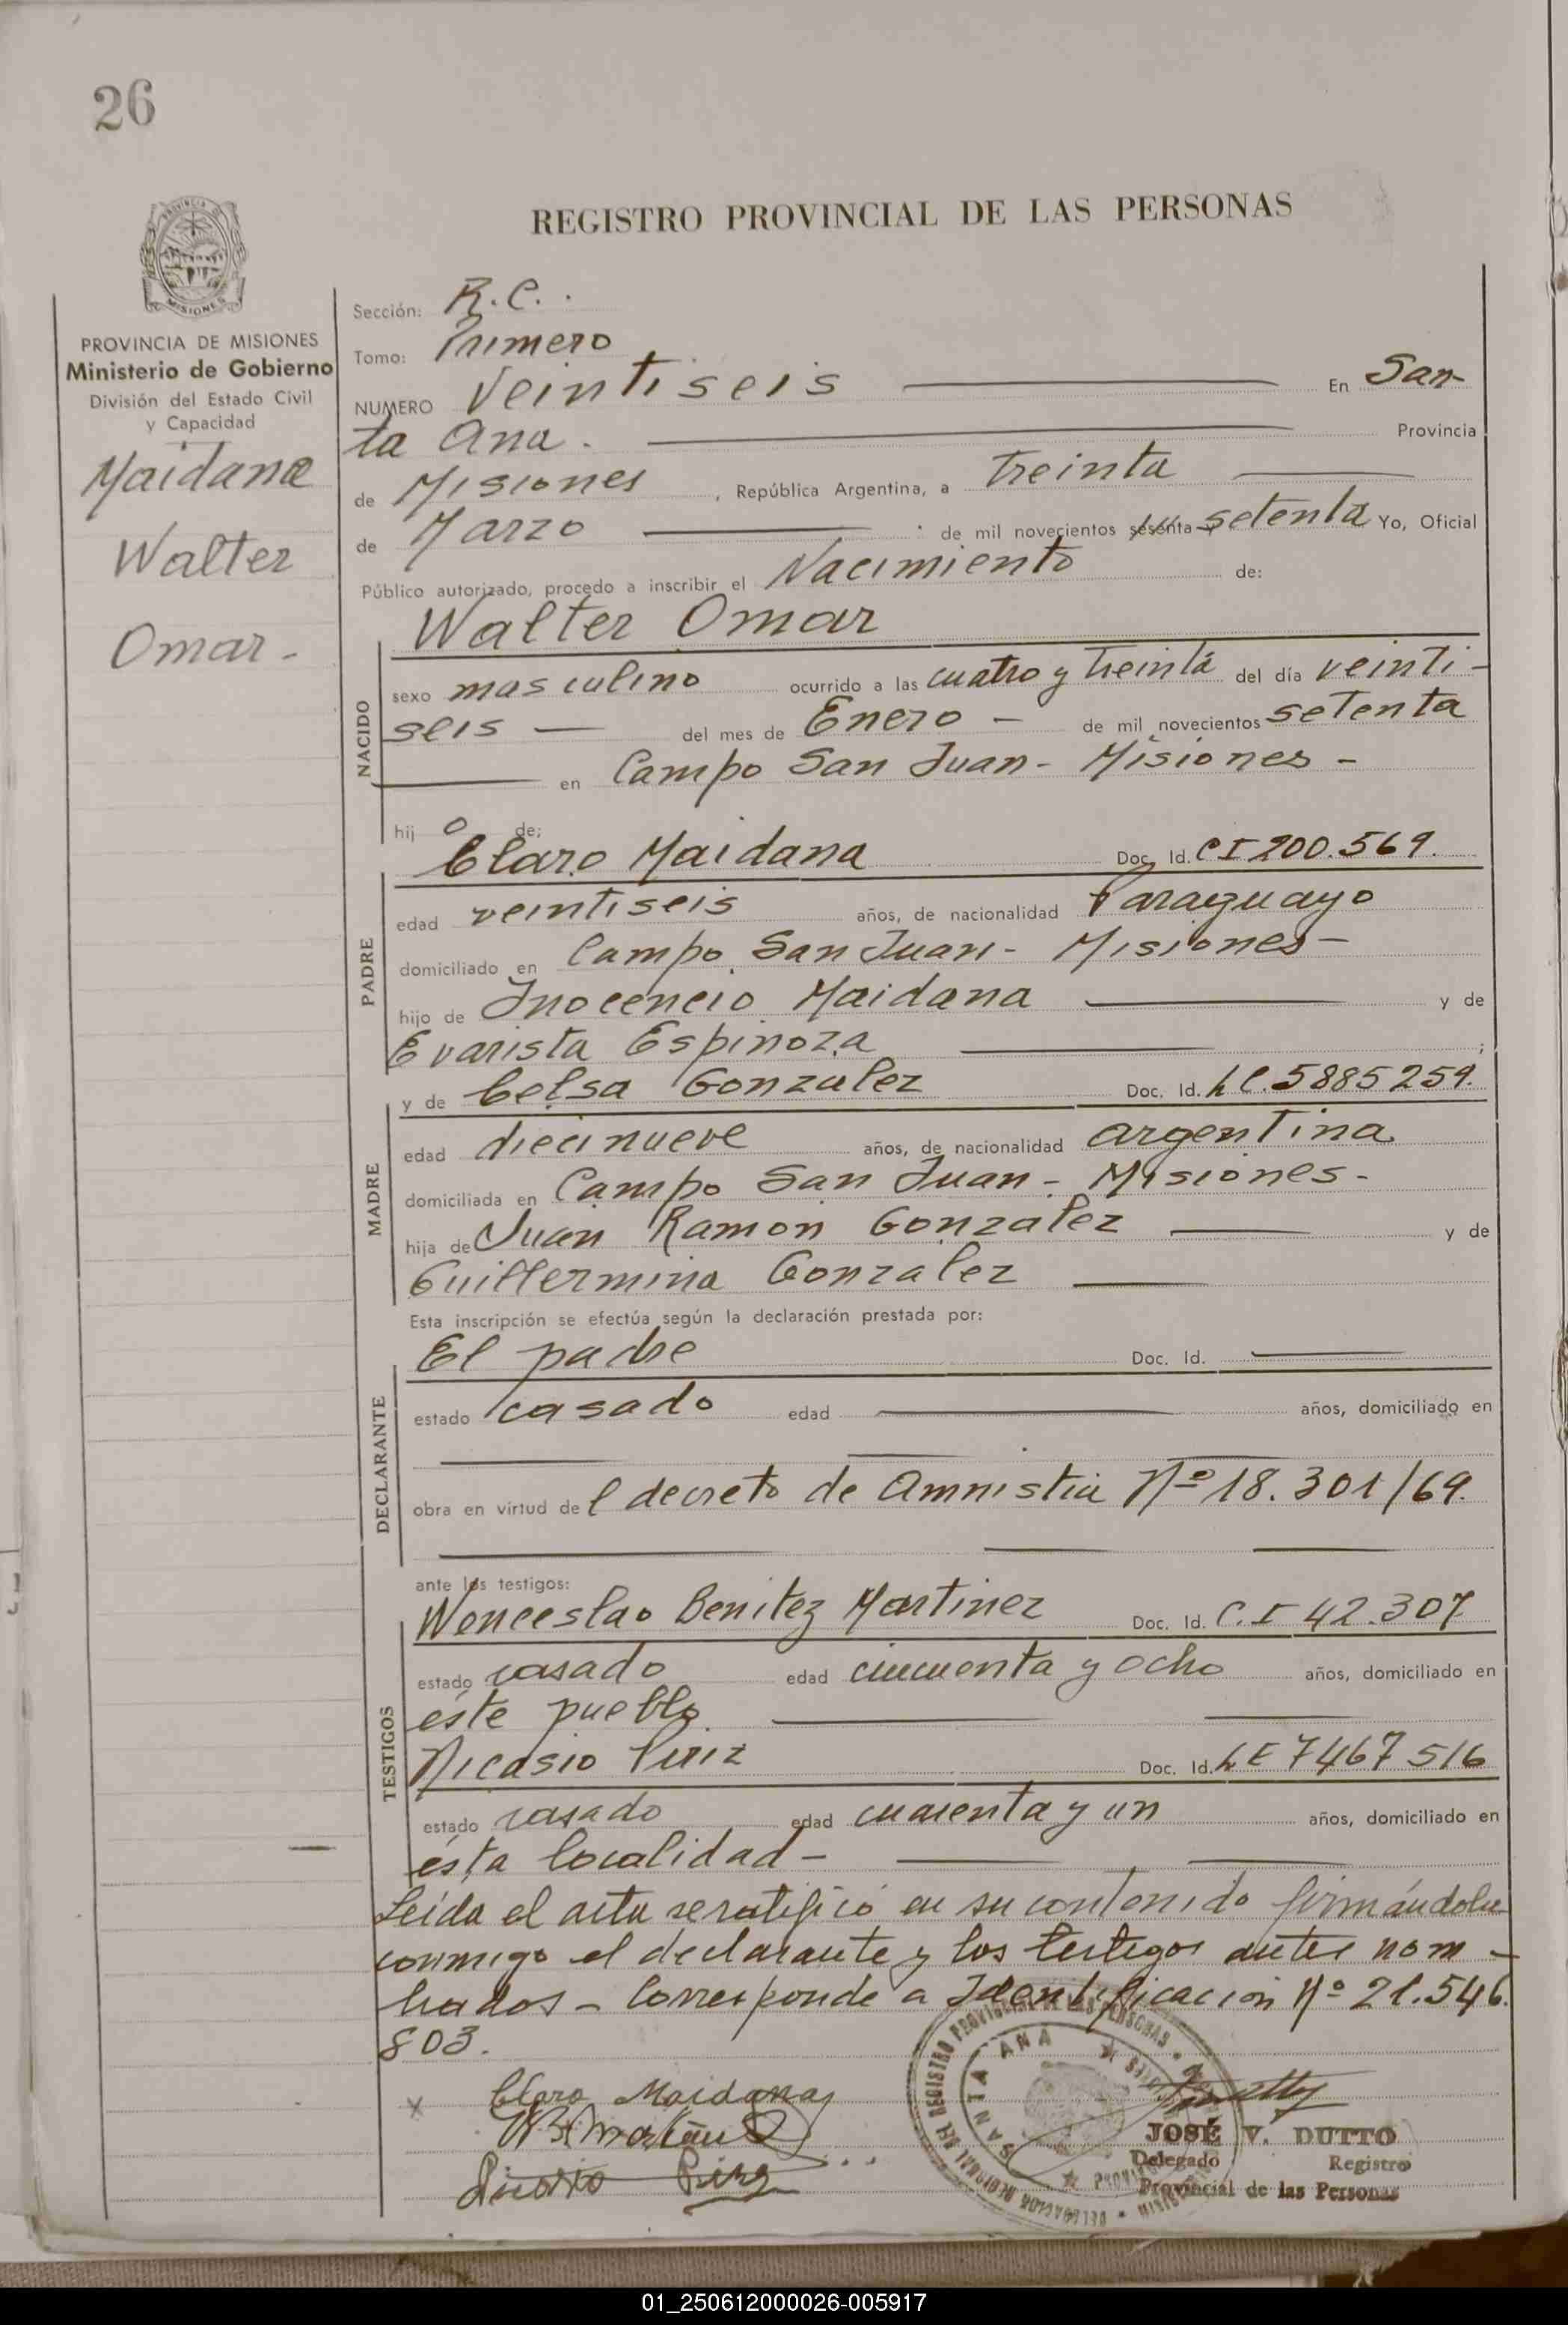 26
REGISTRO PROVINCIAL DE LAS PERSONAS
MISIONES
PROVINCIA DE MISIONES
Ministerio de Gobierno
División del Estado Civil
y Capacidad
Maidana
Walter
Omar -
Sección: R.C.
Tomo: Primero
NUMERO Veintiseis En San-
ta Ana. Provincia
de Misiones, República Argentina, a treinta
de Marzo de mil novecientos sesenta y setenta Yo, Oficial
Público autorizado, procedo a inscribir el Nacimiento de:
Walter Omar
NACIDO
sexo masculino ocurrido a las cuatro y treinta del día veinti-
seis — del mes de Enero — de mil novecientos setenta
en Campo San Juan - Misiones -
hij o de;
Claro Maidana Doc. Id. CI 200.569.
PADRE
edad veintiseis años, de nacionalidad Paraguayo
domiciliado en Campo San Juan - Misiones -
hijo de Inocencio Maidana y de
Evarista Espinoza ;
y de Celsa Gonzalez Doc. Id. LC. 5885259.
MADRE
edad diecinueve años, de nacionalidad argentina
domiciliada en Campo San Juan - Misiones -
hija de Juan Ramon Gonzalez y de
Guillermina Gonzalez
Esta inscripción se efectúa según la declaración prestada por:
El padre Doc. Id.
DECLARANTE
estado casado edad años, domiciliado en
obra en virtud de l decreto de Amnistia Nº 18.301/69.
ante los testigos:
Wenceslao Benitez Martinez Doc. Id. C.I 42.307
TESTIGOS
estado casado edad cincuenta y ocho años, domiciliado en
éste pueblo.
Nicasio Piriz Doc. Id. LE 7467516
estado casado edad cuarenta y un años, domiciliado en
ésta localidad -
Leída el acta se ratificó en su contenido firmándola
conmigo el declarante y los testigos antes nom -
brados - Corresponde a Identificación Nº 21.546.
803.
Claro Maidana
SANTA ANA
JOSÉ V. DUTTO
Delegado Registro
Provincial de las Personas
01_250612000026-005917